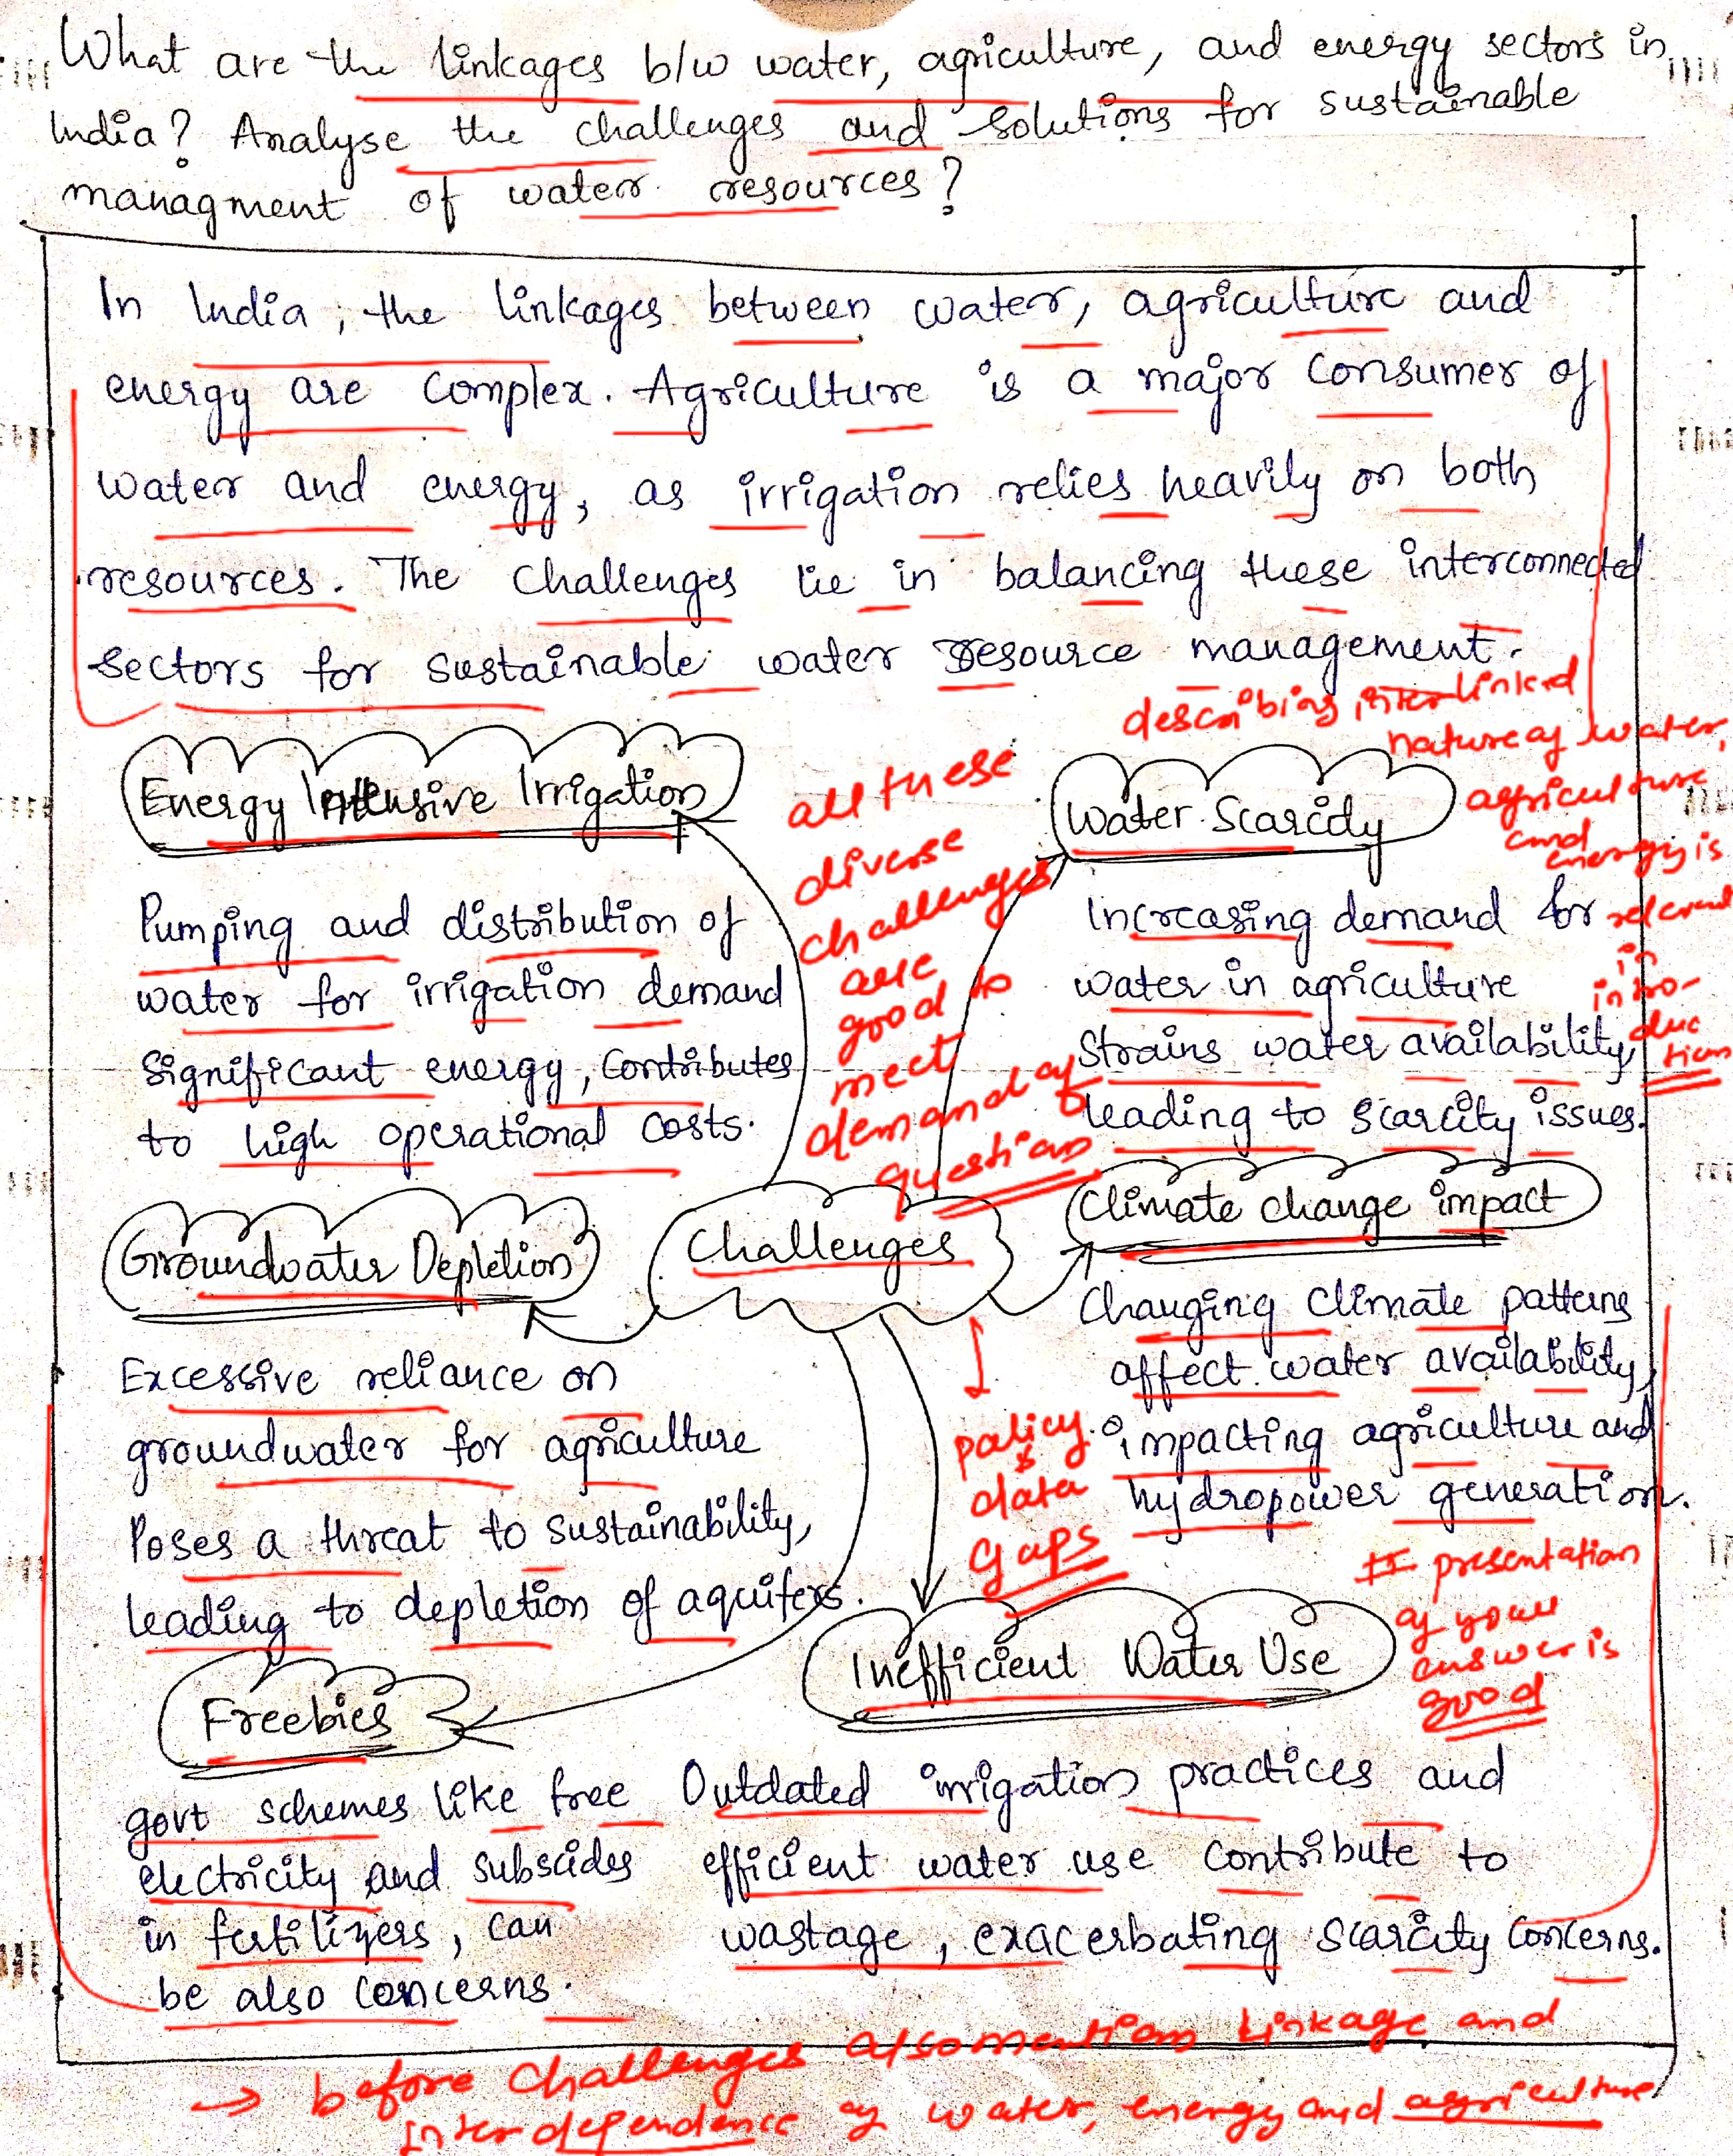 What are the linkages b/w water, agriculture, and energy sectors in
India? Analyse the challenges and solutions for sustainable
managment of water resources?
In India, the linkages between water, agriculture and
energy are complex. Agriculture is a major consumer of
water and energy, as irrigation relies heavily on both
resources. The challenges lie in balancing these interconnected
sectors for sustainable water resource management.
describing interlinked
nature of water,
agriculture
and
energy is
relevant
in
intro-
duc
tion
Energy Intensive Irrigation
Pumping and distribution of
water for irrigation demand
significant energy, contributes
to high operational costs.
all these
diverse
challenges
are
good to
meet
demand of
question
Water Scarcity
Increasing demand for
water in agriculture
strains water availability
leading to scarcity issues.
Challenges
Groundwater Depletion
Excessive reliance on
groundwater for agriculture
Poses a threat to sustainability,
leading to depletion of aquifers.
Climate change impact
Changing climate patterns
affect water availability,
impacting agriculture and
hydropower generation.
policy
&
data
gaps
presentation
of your
answer is
good
Freebies
govt schemes like free
electricity and subscides
in fertilizers, can
be also concerns.
Inefficient Water Use
Outdated irrigation practices and
efficient water use contribute to
wastage, exacerbating scarcity concerns.
→ before challenges also mention linkage and
interdependence of water, energy and agriculture